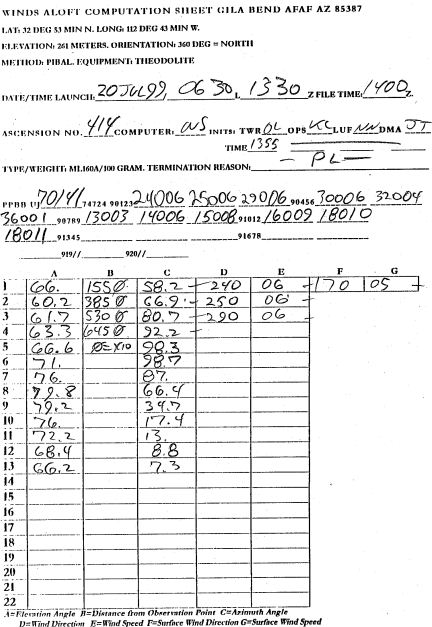 WINDS ALOFT COMPUTATION SHEET GILA BEND AFAF AZ 85387
LAT: 32 DEG 53 MIN N. LONG: 112 DEG 43 MIN W.
ELEVATION: 261 METERS. ORIENTATION: 360 DEG = NORTH
METHOD: PIBAL. EQUIPMENT: THEODOLITE
DATE/TIME LAUNCH: 20JUL99, 0630L 1330 Z FILE TIME: 1400Z.
ASCENSION NO. 414 COMPUTER: INITS: TWR OL OPS KC LUF NN DMA JT
TIME 1355
TYPE/WEIGHT: ML160A/100 GRAM. TERMINATION REASON: - PL -
PPBB UJ 70141 74724 90123 24006 25006 29006 90456 30006 32004
36001 90789 13003 14006 15008 91012 16009 18010
18011 91345 91678
919// 920//
A B C D E F G
1 66. 1550 58.2 240 06 170 05
2 60.2 3850 66.9 250 06
3 61.7 5300 80.7 290 06
4 63.3 6450 92.2
5 66.6 0=x10 98.3
6 71. 98.7
7 76. 87.
8 79.8 66.4
9 79.2 34.7
10 76. 17.4
11 72.2 13.
12 68.4 8.8
13 66.2 7.3
14
15
16
17
18
19
20
21
22
A=Elevation Angle B=Distance from Observation Point C=Azimuth Angle
D=Wind Direction E=Wind Speed F=Surface Wind Direction G=Surface Wind Speed